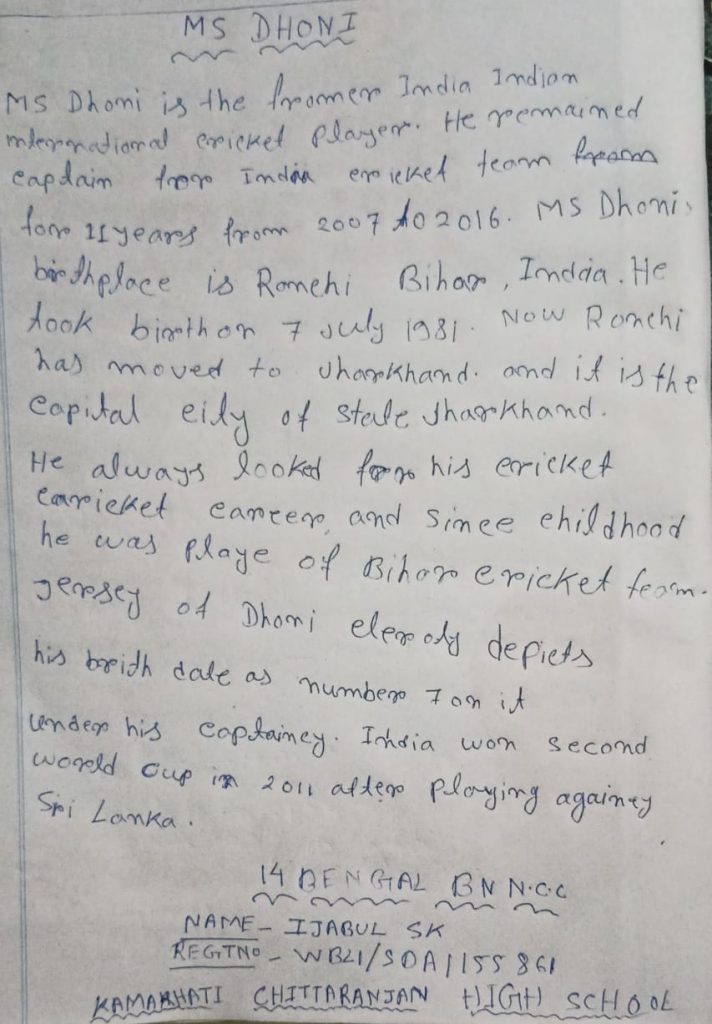 MS DHONI
MS Dhoni is the fromer India Indian
international cricket player. He remained
captain foro India cricket team from
foro 11 years from 2007 to 2016. MS Dhoni,
birthplace is Ranchi Bihar, India. He
took birth on 7 July 1981. Now Ranchi
has moved to Jharkhand. and it is the
Capital city of State Jharkhand.
He always looked for his cricket
caricket career, and since childhood
he was playe of Bihar cricket team.
Jersey of Dhoni clearly depicts
his breith date as number 7 on it
under his captaincy. India won second
world cup in 2011 after playing againey
Sri Lanka.
14 BENGAL BN N.C.C
NAME - IJABUL SK
REGTNO - WB21/SDA1155861
KAMARHATI CHITTARANJAN HIGH SCHOOL